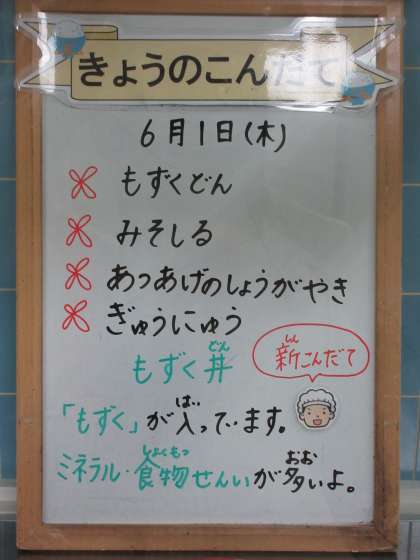 きょうのこんだて
6月1日(木)
もずくどん
みそしる
あつあげのしょうがやき
ぎゅうにゅう
もずく丼
どん
新こんだて
しん
「もずく」が入っています。
はい
ミネラル・食物せんいが多いよ。
しょくもつ
おお